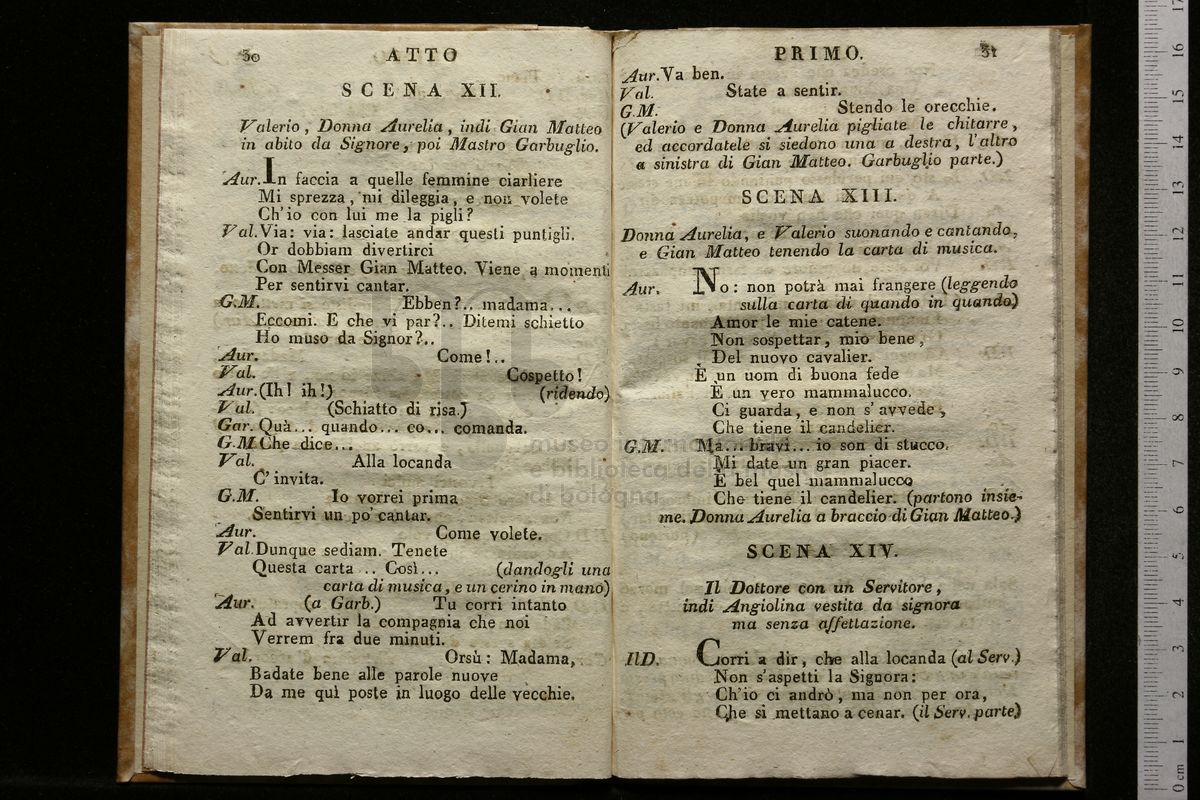 30 ATTO
SCENA XII.
Valerio, Donna Aurelia, indi Gian Matteo
in abito da Signore, poi Mastro Garbuglio.
Aur. In faccia a quelle femmine ciarliere
Mi sprezza, mi dileggia, e non volete
Ch'io con lui me la pigli?
Val. Via: via: lasciate andar questi puntigli.
Or dobbiam divertirci
Con Messer Gian Matteo. Viene a momenti
Per sentirvi cantar.
G.M. Ebben?.. madama...
Eccomi. E che vi par?.. Ditemi schietto
Ho muso da Signor?..
Aur. Come!..
Val. Cospetto!
Aur. (Ih! ih!) (ridendo)
Val. (Schiatto di risa.)
Gar. Quà... quando... co... comanda.
G.M Che dice...
Val. Alla locanda
C'invita.
G.M. Io vorrei prima
Sentirvi un po' cantar.
Aur. Come volete.
Val. Dunque sediam. Tenete
Questa carta .. Così... (dandogli una
carta di musica, e un cerino in mano)
Aur. (a Garb.) Tu corri intanto
Ad avvertir la compagnia che noi
Verrem fra due minuti.
Val. Orsù: Madama,
Badate bene alle parole nuove
Da me quì poste in luogo delle vecchie.
PRIMO. 31
Aur. Va ben.
Val. State a sentir.
G.M. Stendo le orecchie.
(Valerio e Donna Aurelia pigliate le chitarre,
ed accordatele si siedono una a destra, l'altro
a sinistra di Gian Matteo. Garbuglio parte.)
SCENA XIII.
Donna Aurelia, e Valerio suonando e cantando,
e Gian Matteo tenendo la carta di musica.
Aur. No: non potrà mai frangere (leggendo
sulla carta di quando in quando)
Amor le mie catene.
Non sospettar, mio bene,
Del nuovo cavalier.
È un uom di buona fede
È un vero mammalucco.
Ci guarda, e non s'avvede,
Che tiene il candelier.
G.M. Ma... bravi... io son di stucco.
Mi date un gran piacer.
È bel quel mammalucco
Che tiene il candelier. (partono insie-
me. Donna Aurelia a braccio di Gian Matteo.)
SCENA XIV.
Il Dottore con un Servitore,
indi Angiolina vestita da signora
ma senza affettazione.
Il D. Corri a dir, che alla locanda (al Serv.)
Non s'aspetti la Signora:
Ch'io ci andrò, ma non per ora,
Che si mettano a cenar. (il Serv. parte)
museo
e biblioteca della
di bologna
0 cm 1 2 3 4 5 6 7 8 9 10 11 12 13 14 15 16 17